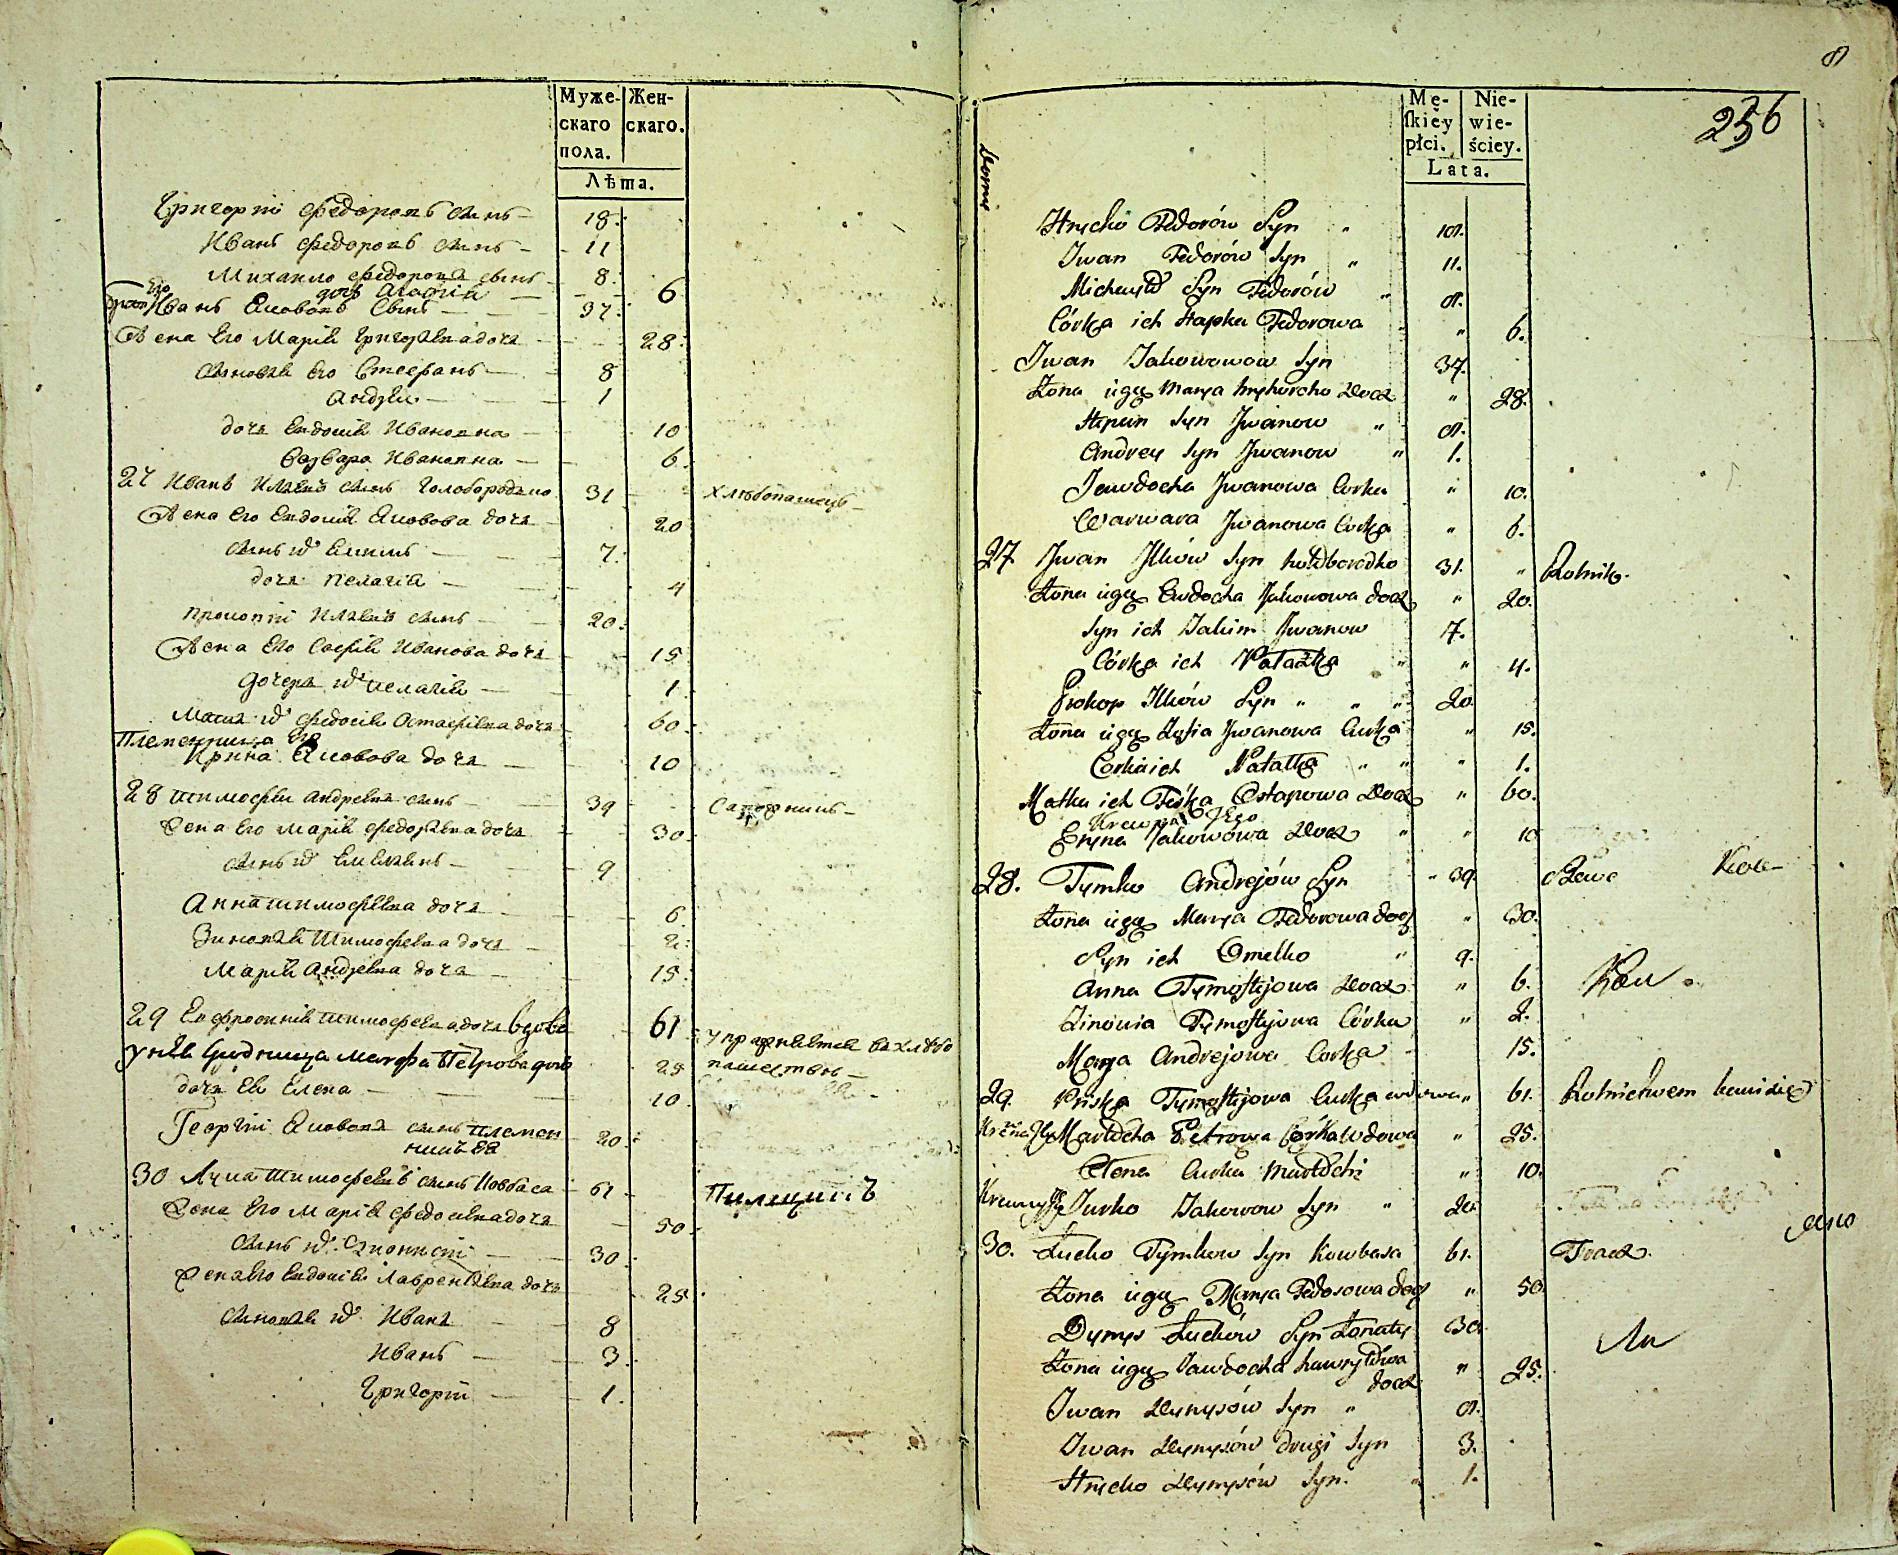 Муже-
скаго
пола.
Жен-
скаго.
Лѣта.
Григорій Федоровъ сынъ 18.
Иванъ Федоровъ сынъ 11
Михаило Федоровъ сынъ 8.
дочь Агафія 6
Его братъ Иванъ Якововъ Сынъ 37.
Жена Его Марія Григорѣвна доча 28.
Сыновья Его Стефанъ 8
Андрѣй 1
доча Евдокія Ивановна 10
Варвара Ивановна 6.
27 Иванъ Илѣевъ сынъ Голобородько 31 хлѣбопашецъ
Жена Его Евдокія Яковова доча 20
сынъ ихъ Екимъ 7.
доча Пелагія 4
Прокопій Илѣевъ сынъ 20.
Жена Его Софія Иванова доча 15
дочеря ихъ Пелагія 1
Мать ихъ Федосія Остафіева доча 60
Племенница Его
Ирина Яковова доча 10
28 Тимофей Андреевъ сынъ 39 Сапожникъ
Жена Его Марія Федорѣвна доча 30.
сынъ ихъ Емелянъ 9
Анна Тимофѣевна доча 6.
Зиновья Тимофѣевна доча 2.
Марія Андрѣевна доча 15.
29 Ефросинія Тимофѣевна доча вдова 61 упражняется въ хлѣбо
пашествѣ
Марфа Петрова дочь 25
доча Ея Елена 10.
Георгій Якововъ сынъ племен 20.
никъ Ея
30 Лука Тимофѣевъ сынъ Ковбаса 61
Жена Его Марія Федосѣевна доча 50.
Сынъ ихъ Діонисій 30.
Жена Его Евдокія Лаврентіевна доча 25.
Сыновья ихъ Иванъ 8
Иванъ 3.
Григорій 1.
8
236
Domy
Mę-
skiey
płci.
Nie-
wie-
ściey.
Lata.
Hryćko Fedorów Syn " 18.
Iwan Fedorów Syn " 11.
Michayło Syn Fedorów " 8.
Córka ich Hapka Fedorowa " 6.
Iwan Jakowowow Syn 37.
Żona iegą Marya Hryhorcha Docz " 28.
Stepan Syn Iwanow " 8.
Andrey Syn Iwanow " 1.
Jewdocha Iwanowa Corka " 10.
Warwara Iwanowa Corka " 6.
27. Iwan Ilków Syn hołoborodko 31. " Rolnik.
Żona iegą Ewdocha Jakowowa docz " 20.
Syn ich Jakim Iwanow 7.
Córka ich Pałażka " " 4.
Prokop Ilków Syn " " " 20
Żona iegą Zofia Iwanowa Curka " 15.
Corka ich Pałażka " " " 1.
Matka ich Feśka Ostapowa Docz " 60.
Krewna Jego
Eryna Jakowowa Docz " " 10
28. Tymko Andrejów Syn 39. Szewc
Żona iegą Marya Fedorowa docz " 30.
Syn ich Omelko " 9.
Anna Tymoftijowa Docz " 6.
Zinowia Tymoftijowa Córka " 2.
Marya Andrejowa Corka 15.
29. Pryśka Tymoftijowa Curka wdowa " 61. Rolnictwem bawi się
Martocha Petrowa Córka wdowa " 25.
Ołena Curka Martochi " 10.
Jurko Jakowow Syn " 20.
30. Łucko Tymkow Syn Kowbasa 61. Tracz.
Żona iegą Marya Fedosowa docz " 50.
Dymys Łuckow Syn Żonaty 30.
Żona iegą Jawdocha Hawryłowa " 25.
docz
Iwan Dymysów Syn " 8.
Iwan Dymysów drugi Syn 3.
Hryćko Dymysów Syn. " 1.